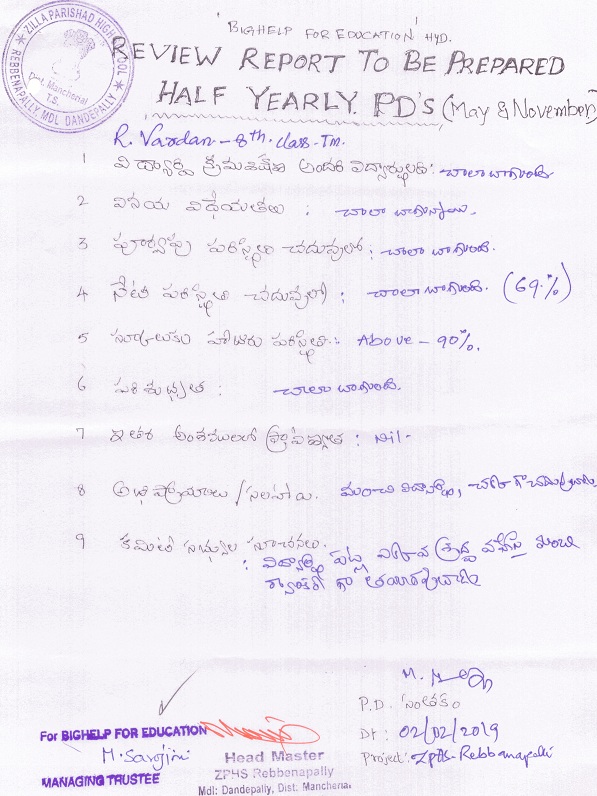 ZILLA PARISHAD HIGH SCHOOL
REBBENAPALLY, MDL DANDEPALLY
Dist. Mancherial
T.S.
'BIGHELP FOR EDUCATION' HYD.
REVIEW REPORT TO BE PREPARED
HALF YEARLY. PD'S (May & November)
R. Vardan - 8th. class - Tm.
1 విద్యార్థి క్రమశిక్షణ అందరి విద్యార్థులకు: చాలా బాగుంది.
2 వినయ విధేయతలు : చాలా బాగున్నాయి.
3 పూర్వపు పరిస్థితి చదువులో : చాలా బాగుంది.
4 నేటి పరిస్థితి చదువులో : చాలా బాగుంది. (69%)
5 స్కూలుకు హాజరు పరిస్థితి : Above - 90%.
6 పరిశుభ్రత : చాలా బాగుంది.
7 ఇతర అంశములలో ప్రావీణ్యత : Nil-
8 అభిప్రాయాలు / సలహాలు. మంచి విద్యార్థి,
9 కమిటీ సభ్యుల సూచనలు.
: విద్యార్థి పట్ల శ్రద్ధ వహిస్తే మంచి
గా
P.D. సంతకం
Dt : 02/02/2019
Project: ZPHS-Rebbanapalli
For BIGHELP FOR EDUCATION
M. Sarojini
MANAGING TRUSTEE
Head Master
ZPHS Rebbenapally
Mdl: Dandepally, Dist. Mancherial